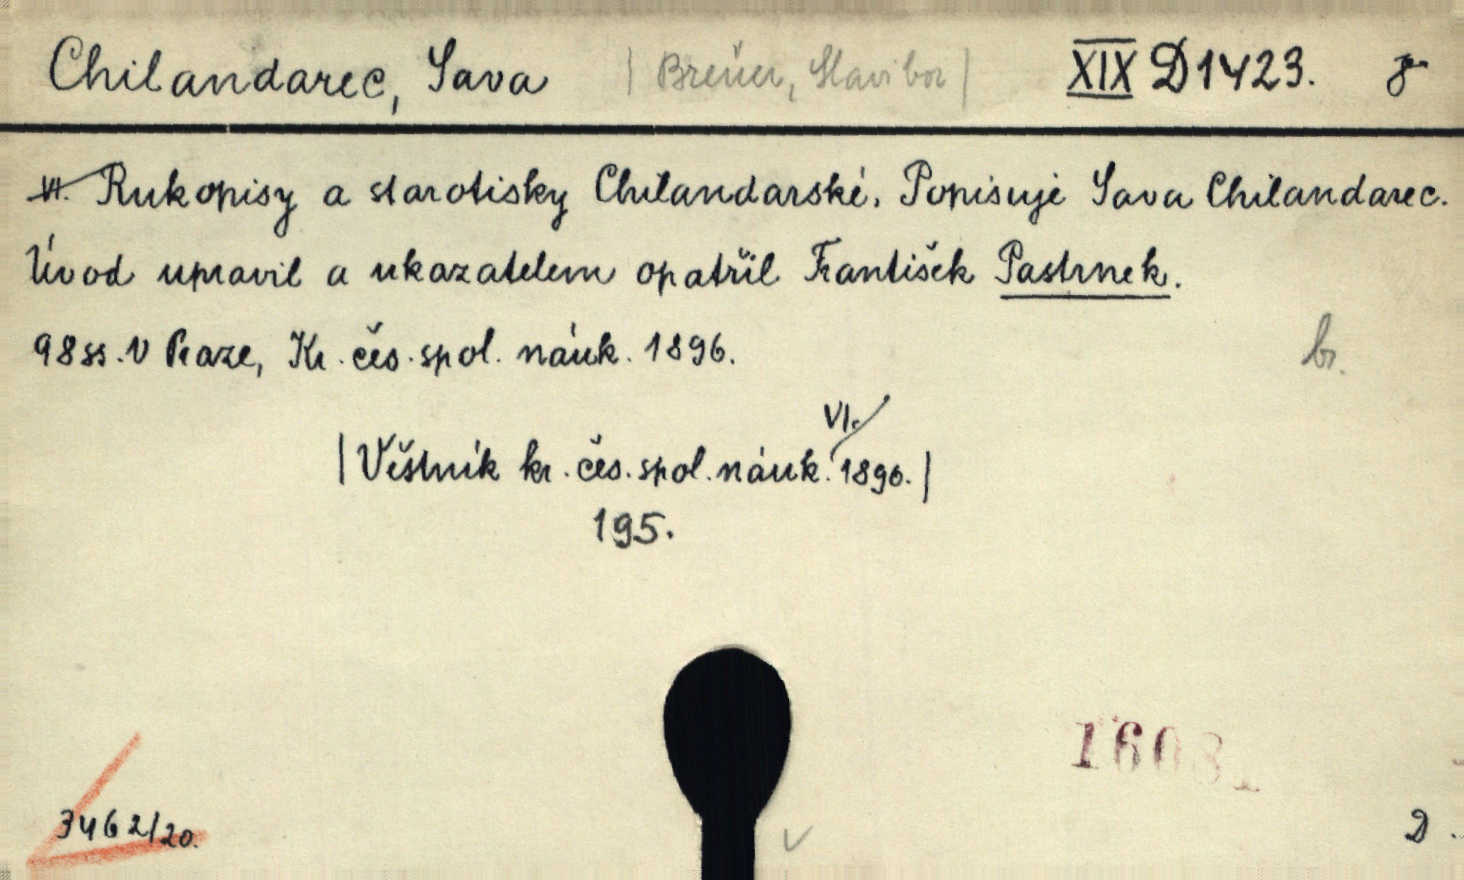 Chilandarec, Sava | Breuer, Slavibor | XIX D 1423. 8°
VI. Rukopisy a starotisky Chilandarské. Popisuje Sava Chilandarec.
Úvod upravil a ukazatelem opatřil František Pastrnek.
98 ss. V Praze, Kr. čes. spol. náuk. 1896.
br.
VI.
| Věstník kr. čes. spol. náuk. 1896. |
195.
1608
3462/20.
D.